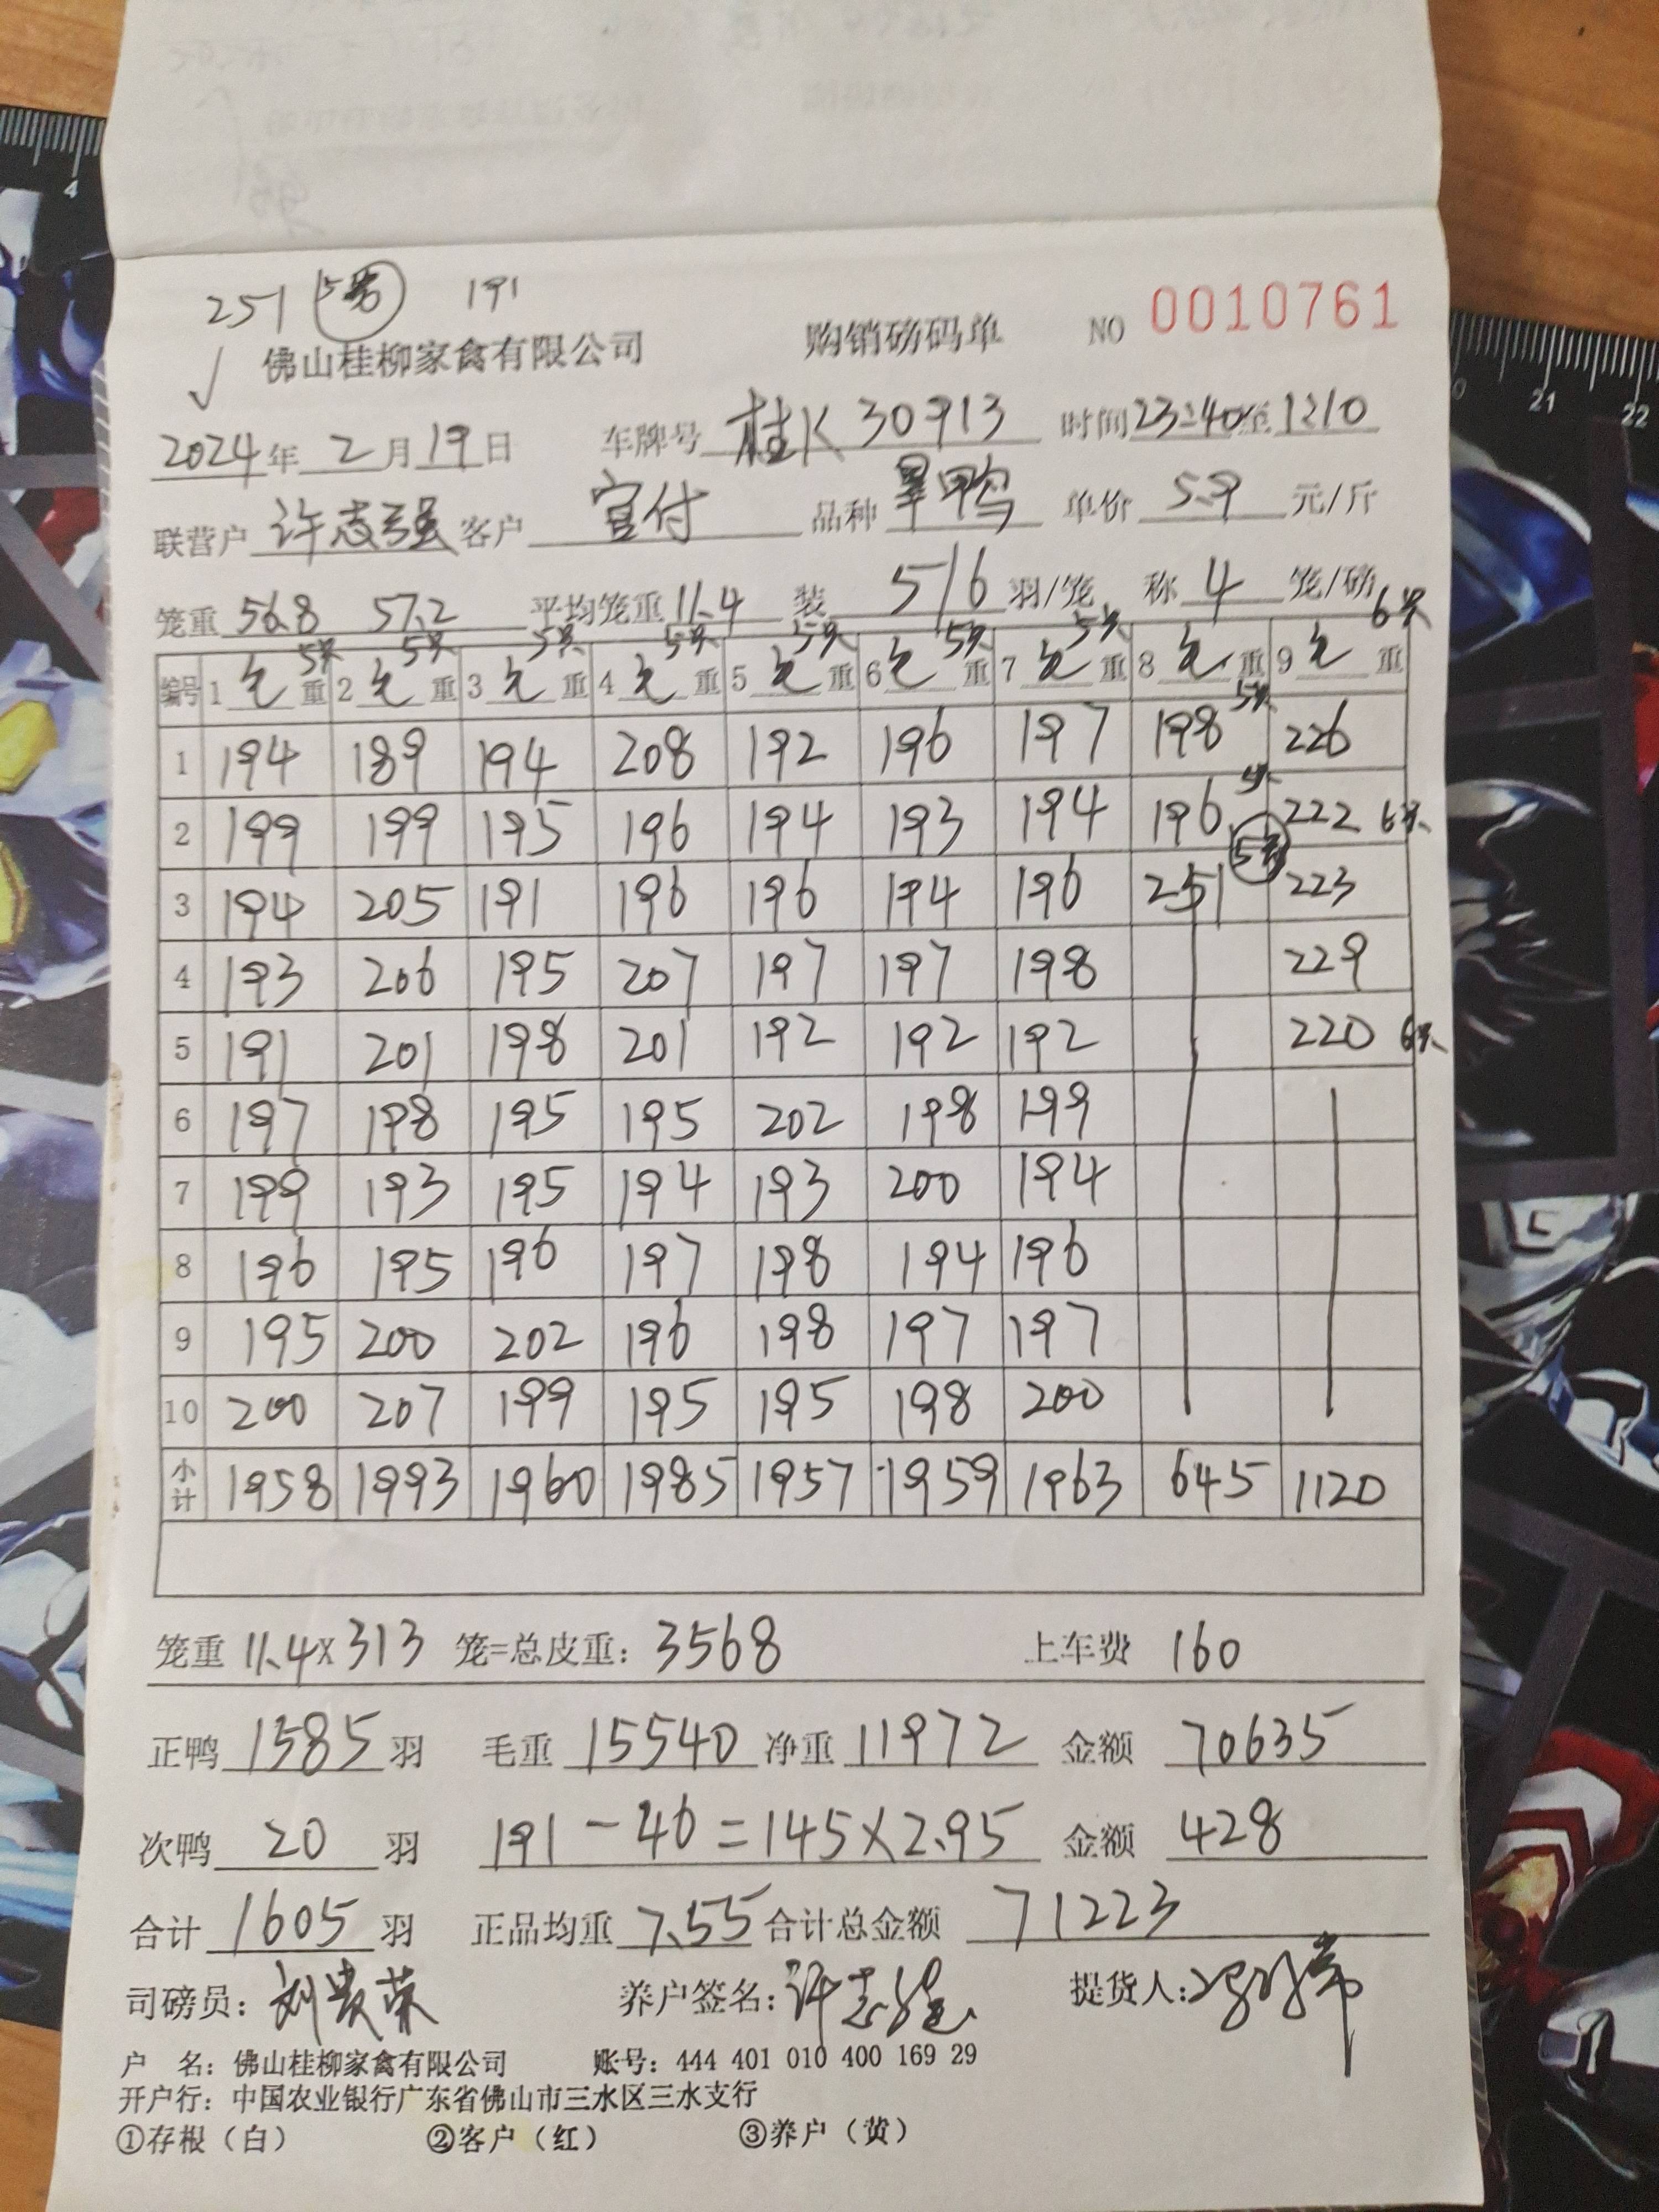 251 5号 191
佛山桂柳家禽有限公司 购销磅码单 NO 0010761
2024年2月19日 车牌号 桂K30913 时间23:40至1:10
联营户 许志强 客户 官付 品种 旱鸭 单价 5.9 元/斤
笼重 56.8 57.2 平均笼重 11.4 装 5/6 羽/笼 称 4 笼/磅
5只 5只 5只 5只 5只 5只 5只 6只
编号 1 毛重 2 毛重 3 毛重 4 毛重 5 毛重 6 毛重 7 毛重 8 毛重 9 毛重
1 194 189 194 208 192 196 197 198 5只 226
2 199 199 195 196 194 193 194 196 5只 222 6只
3 194 205 191 196 196 194 196 251 5号 223
4 193 206 195 207 197 197 198 229
5 191 201 198 201 192 192 192 220 6只
6 197 198 195 195 202 198 199
7 199 193 195 194 193 200 194
8 196 195 196 197 198 194 196
9 195 200 202 196 198 197 197
10 200 207 199 195 195 198 200
小计 1958 1993 1960 1985 1957 1959 1963 645 1120
笼重 11.4×313 笼=总皮重: 3568 上车费 160
正鸭 1585 羽 毛重 15540 净重 11972 金额 70635
次鸭 20 羽 191-46=145×2.95 金额 428
合计 1605 羽 正品均重 7.55 合计总金额 71223
司磅员: 刘贵荣 养户签名: 许志强 提货人:
户 名: 佛山桂柳家禽有限公司 账号: 444 401 010 400 169 29
开户行: 中国农业银行广东省佛山市三水区三水支行
①存根（白） ②客户（红） ③养户（黄）